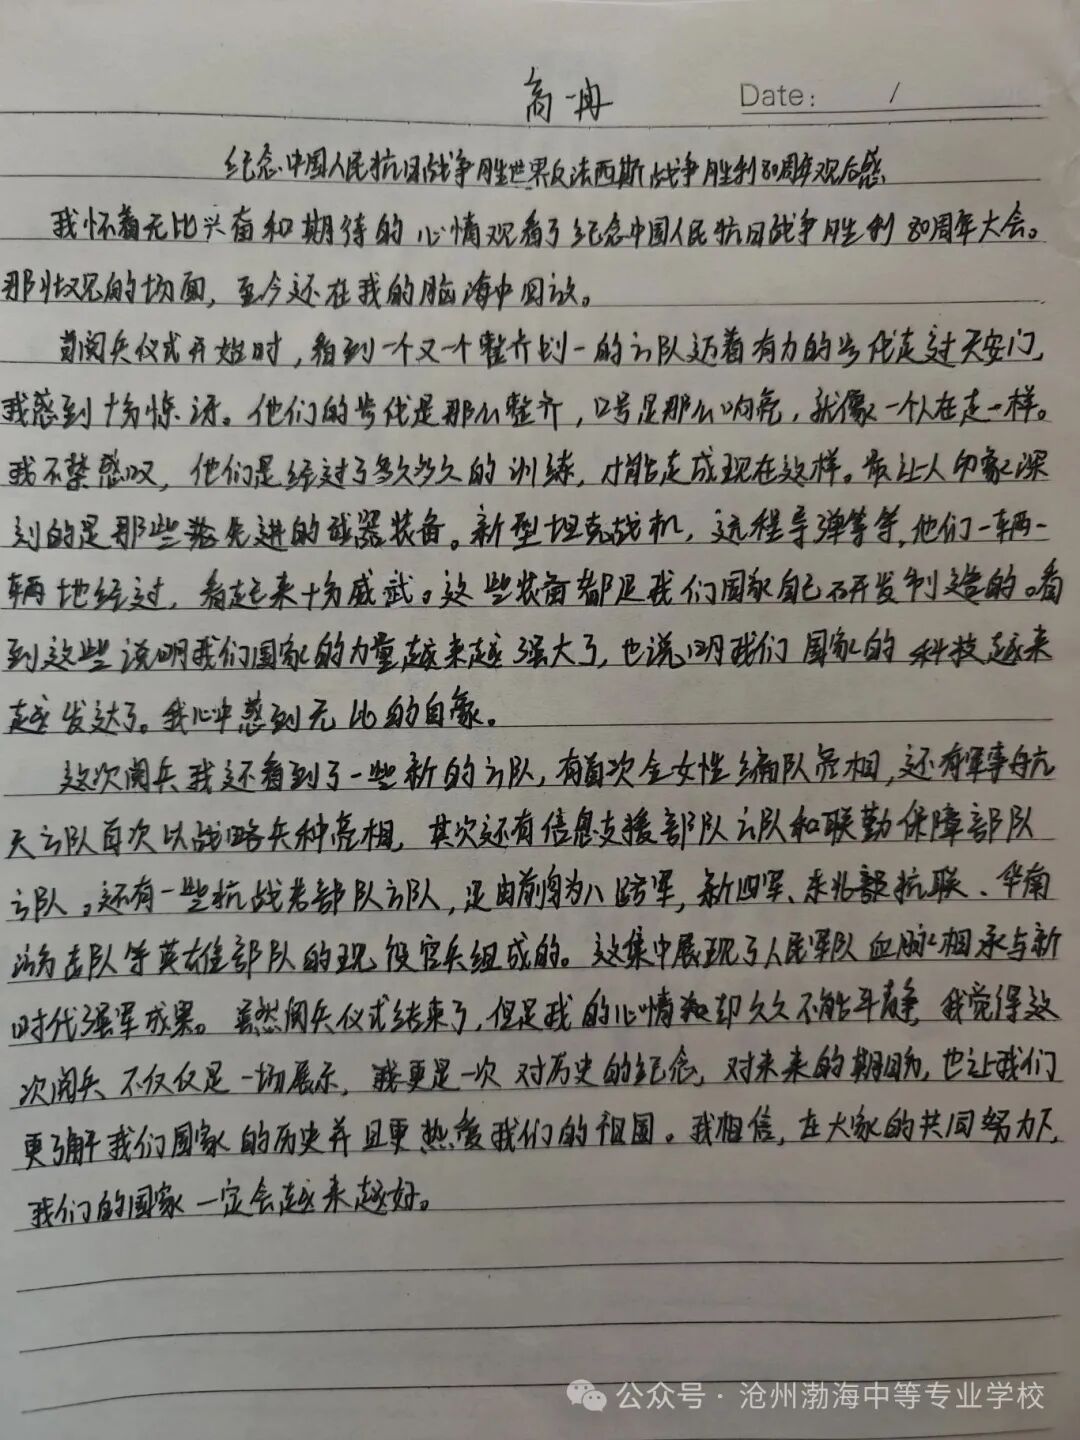 高一冉
Date: /
纪念中国人民抗日战争胜世界反法西斯战争胜利80周年观后感
我怀着无比兴奋和期待的心情观看了纪念中国人民抗日战争胜利80周年大会。
那壮观的场面，至今还在我的脑海中回放。
首阅兵仪式开始时，看到一个又一个整齐划一的方队迈着有力的步伐走过天安门，
我感到十分惊讶。他们的步伐是那么整齐，口号是那么响亮，就像一个人在走一样。
我不禁感叹，他们是经过了多久多久的训练，才能走成现在这样。最让人印象深
刻的是那些先进的武器装备。新型坦克战机，远程导弹等等，他们一辆一
辆地经过，看起来十分威武。这些装备都是我们国家自己研发制造的。看
到这些说明我们国家的力量越来越强大了，也说明我们国家的科技越来
越发达了。我心中感到无比的自豪。
这次阅兵我还看到了一些新的方队，有首次全女性编队亮相，还有军事航
天方队首次以战略兵种亮相，其次还有信息支援部队方队和联勤保障部队
方队。还有一些抗战老部队方队，是由前身为八路军，新四军、东北抗联、华南
游击队等英雄部队的现役官兵组成的。这集中展现了人民军队血脉相承与新
时代强军成果。虽然阅兵仪式结束了，但是我的心情却久久不能平静，我觉得这
次阅兵不仅仅是一场展示，更是一次对历史的纪念，对未来的期盼，也让我们
更了解我们国家的历史并且更热爱我们的祖国。我相信，在大家的共同努力下，
我们的国家一定会越来越好。
公众号·沧州渤海中等专业学校